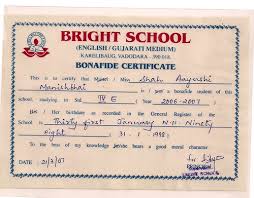 BRIGHT SCHOOL
(ENGLISH / GUJARATI MEDIUM)
KARELIBAUG, VADODARA - 390 018.
BONAFIDE CERTIFICATE
This is to certify that Master / Miss Shah Aayushi
Manishbhai is / was a bonafide student of this
school, studying in Std IV E Year 2006-2007.
His / Her birthdate as recorded in the General Register of the
School is Thirty first January N.H. Ninety
eight (31-1-1998)
To the best of my knowledge he/she bears a good moral character
Date 21/2/07